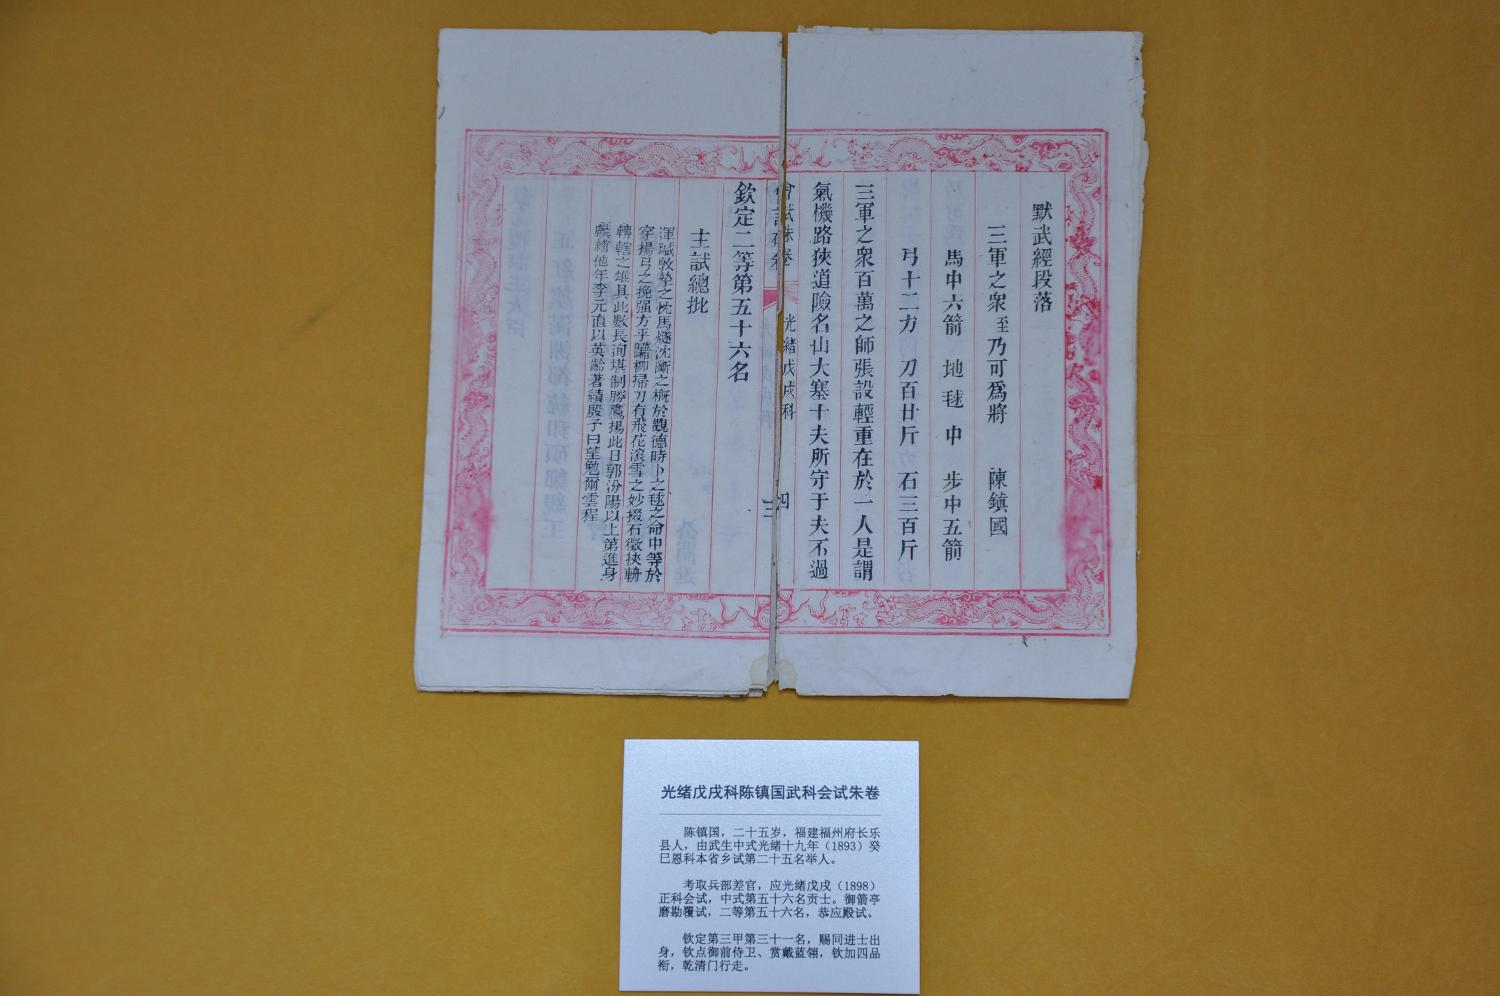 默武經段落
三軍之衆至乃可爲將 陳鎮國
馬中六箭 地毬中 步中五箭
弓十二力 刀百廿斤 石三百斤
三軍之衆百萬之師張設輕重在於一人是謂
氣機路狹道險名山大塞十夫所守千夫不過
會試硃卷 光緒戊戌科 四
三
欽定二等第五十六名
主試總批
渾瑊敦摯之忱馬燧沈斷之概於觀德時卜之毬之命中等於
穿楊弓之挽强方乎 柳掃刀有飛花滾雪之妙掇石徵挾輈
轉轄之雄具此數長洵堪制勝鷹揚此日郭汾陽以上第進身
麟繪他年李元直以英齡著績殿予曰望勉爾雲程
光绪戊戌科陈镇国武科会试朱卷
陈镇国，二十五岁，福建福州府长乐
县人，由武生中式光绪十九年（1893）癸
巳恩科本省乡试第二十五名举人。
考取兵部差官，应光绪戊戌（1898）
正科会试，中式第五十六名贡士。御箭亭
磨勘覆试，二等第五十六名，恭应殿试。
钦定第三甲第三十一名，赐同进士出
身，钦点御前侍卫、赏戴蓝翎，钦加四品
衔，乾清门行走。